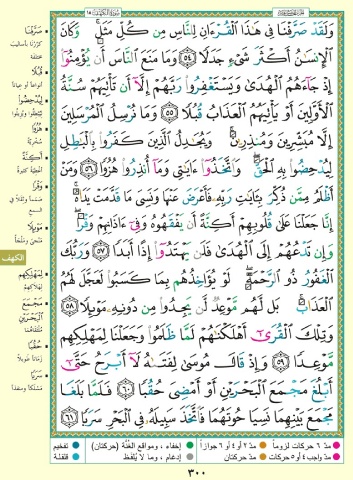 وَلَقَدْ صَرَّفْنَا فِي هَٰذَا الْقُرْءَانِ لِلنَّاسِ مِن كُلِّ مَثَلٍ ۚ وَكَانَ
الْإِنسَٰنُ أَكْثَرَ شَيْءٍ جَدَلًا ٥٤ وَمَا مَنَعَ النَّاسَ أَن يُؤْمِنُوٓا
إِذْ جَآءَهُمُ الْهُدَىٰ وَيَسْتَغْفِرُوا رَبَّهُمْ إِلَّآ أَن تَأْتِيَهُمْ سُنَّةُ
الْأَوَّلِينَ أَوْ يَأْتِيَهُمُ الْعَذَابُ قُبُلًا ٥٥ وَمَا نُرْسِلُ الْمُرْسَلِينَ
إِلَّا مُبَشِّرِينَ وَمُنذِرِينَ ۚ وَيُجَٰدِلُ الَّذِينَ كَفَرُوا بِالْبَٰطِلِ
لِيُدْحِضُوا بِهِ الْحَقَّ ۖ وَاتَّخَذُوٓا ءَايَٰتِي وَمَآ أُنذِرُوا هُزُوًا ٥٦ وَمَنْ
أَظْلَمُ مِمَّن ذُكِّرَ بِـَٔايَٰتِ رَبِّهِ فَأَعْرَضَ عَنْهَا وَنَسِيَ مَا قَدَّمَتْ يَدَاهُ ۚ
إِنَّا جَعَلْنَا عَلَىٰ قُلُوبِهِمْ أَكِنَّةً أَن يَفْقَهُوهُ وَفِيٓ ءَاذَانِهِمْ وَقْرًا ۖ
وَإِن تَدْعُهُمْ إِلَى الْهُدَىٰ فَلَن يَهْتَدُوٓا إِذًا أَبَدًا ٥٧ وَرَبُّكَ
الْغَفُورُ ذُو الرَّحْمَةِ ۖ لَوْ يُؤَاخِذُهُم بِمَا كَسَبُوا لَعَجَّلَ لَهُمُ
الْعَذَابَ ۚ بَل لَّهُم مَّوْعِدٌ لَّن يَجِدُوا مِن دُونِهِ مَوْئِلًا ٥٨
وَتِلْكَ الْقُرَىٰٓ أَهْلَكْنَٰهُمْ لَمَّا ظَلَمُوا وَجَعَلْنَا لِمَهْلِكِهِم
مَّوْعِدًا ٥٩ وَإِذْ قَالَ مُوسَىٰ لِفَتَىٰهُ لَآ أَبْرَحُ حَتَّىٰٓ
أَبْلُغَ مَجْمَعَ الْبَحْرَيْنِ أَوْ أَمْضِيَ حُقُبًا ٦٠ فَلَمَّا بَلَغَا
مَجْمَعَ بَيْنِهِمَا نَسِيَا حُوتَهُمَا فَاتَّخَذَ سَبِيلَهُ فِي الْبَحْرِ سَرَبًا ٦١
صَرَّفْنَا
كرّرنا بأساليب
مختلفة
قُبُلًا
لِيُدْحِضُوا
هُزُوًا
سُخرية
أَكِنَّةً
أغطية كثيرة
وَقْرًا
صممًا وثقلًا في
السمع
مَوْئِلًا
منجى وملجأ
الكهف
لِمَهْلِكِهِم
لهلاكهم
مَجْمَعَ
الْبَحْرَيْنِ
ملتقاهما
حُقُبًا
زمانًا طويلًا
سَرَبًا
مسلكًا ومنفذًا
مدّ ٦ حركات لزوماً
مدّ ٢ أو ٤ أو ٦ جوازاً
إخفاء، ومواقع الغُنَّة (حركتان)
تفخيم
مدّ واجب ٤ أو ٥ حركات
مدّ حركتان
إدغام، وما لا يُلفظ
قلقلة
٣٠٠